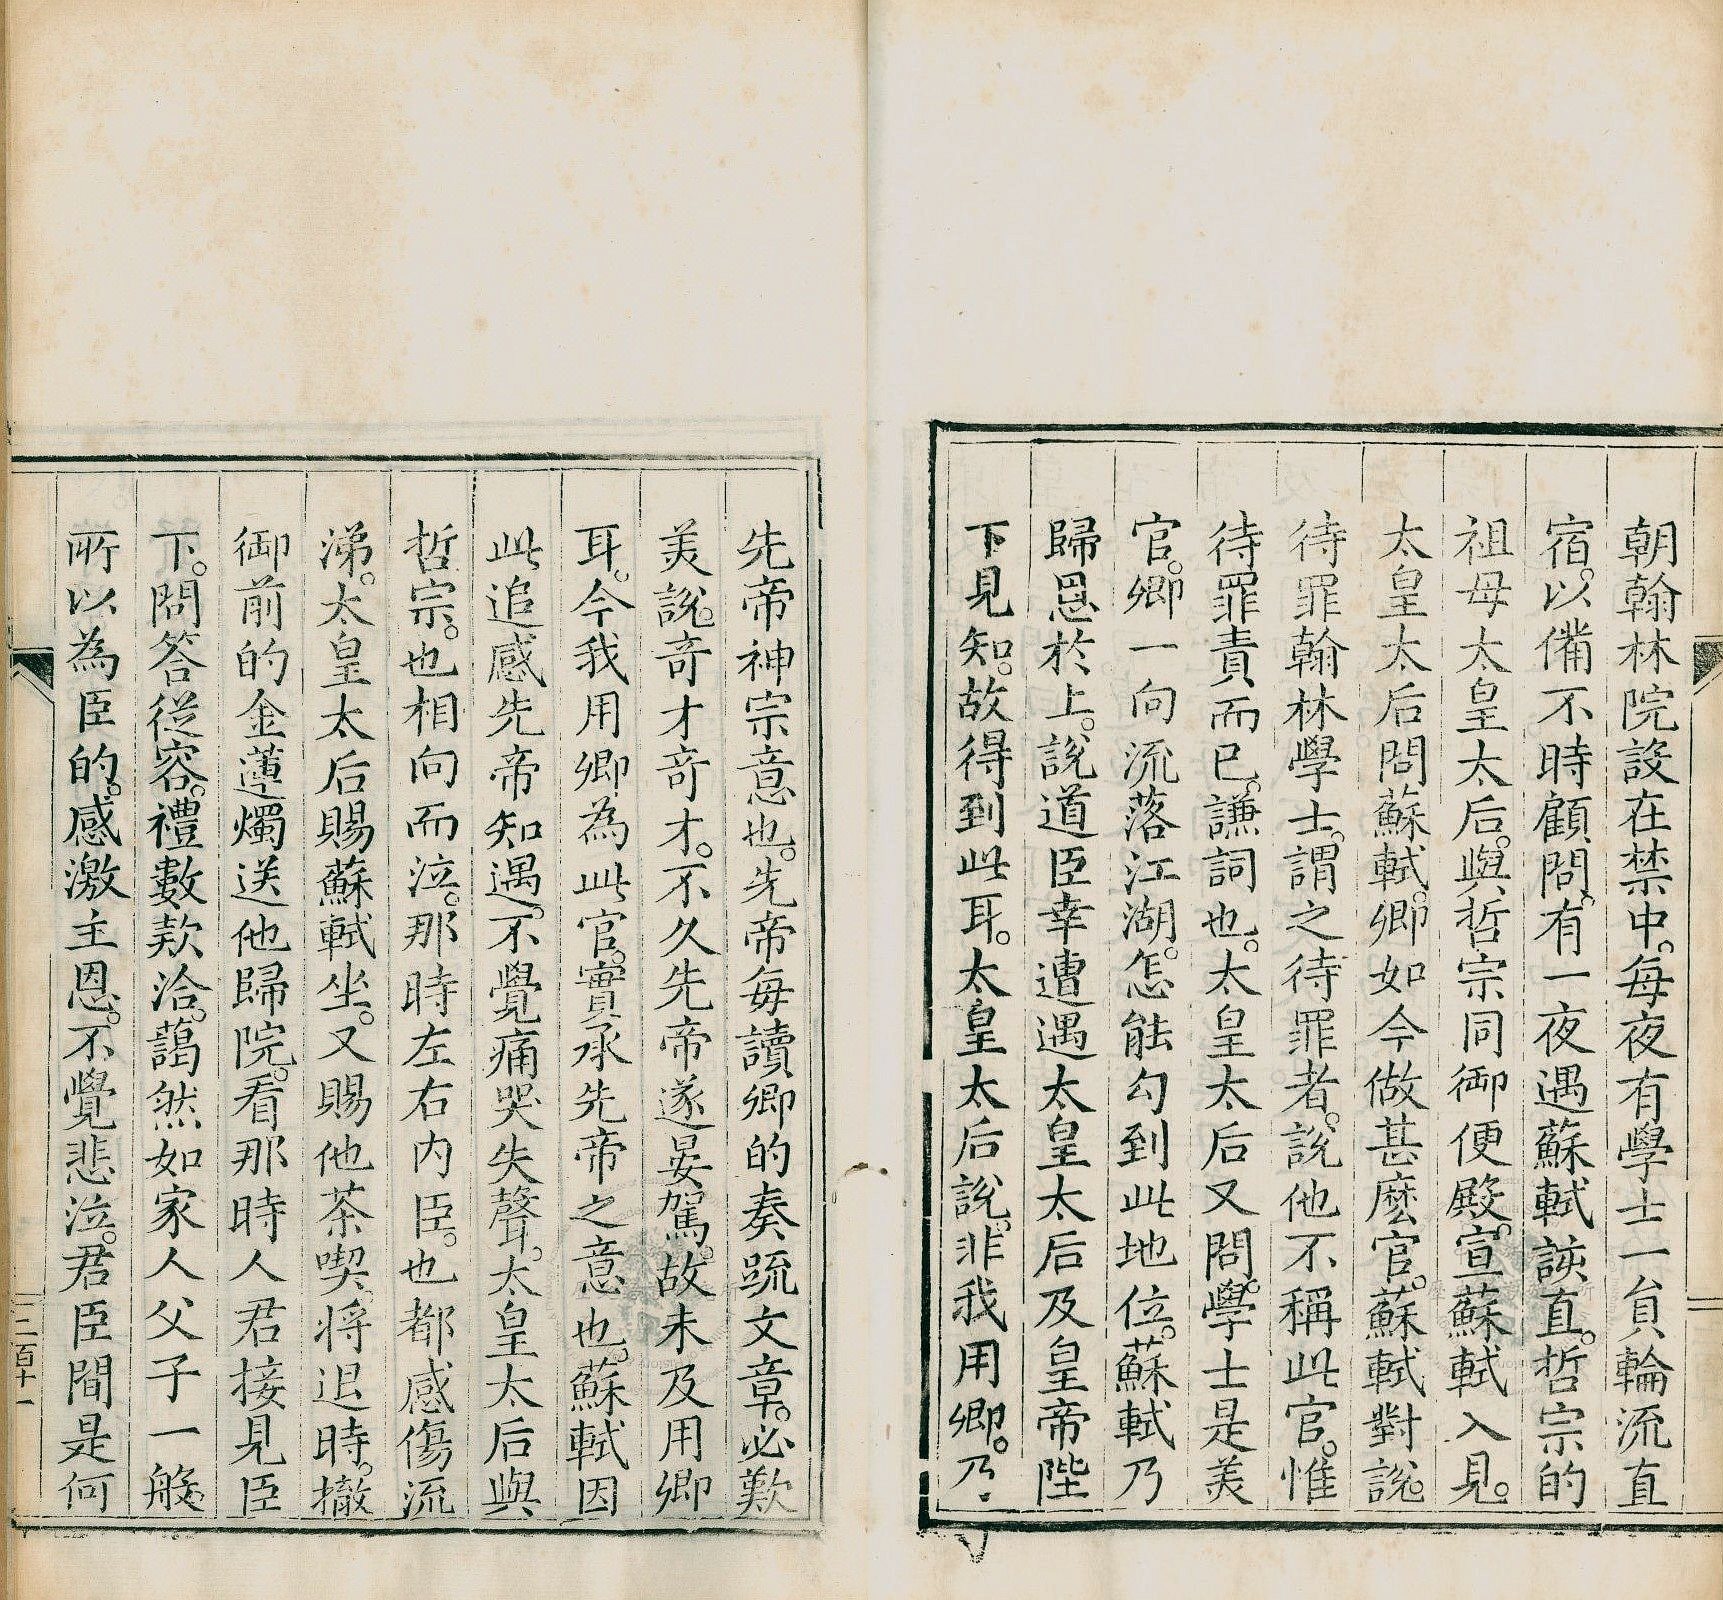 朝翰林院設在禁中。每夜有學士一員輪流直
宿。以備不時顧問。有一夜遇蘇軾該直。哲宗的
祖母太皇太后。與哲宗同御便殿。宣蘇軾入見。
太皇太后問蘇軾。卿如今做甚麽官。蘇軾對說。
待罪翰林學士。謂之待罪者。說他不稱此官。惟
待罪責而已。謙詞也。太皇太后又問。學士是美
官。卿一向流落江湖。怎能勾到此地位。蘇軾乃
歸恩於上。說道臣幸遭遇太皇太后及皇帝陛
下見知。故得到此耳。太皇太后說。非我用卿。乃
先帝神宗意也。先帝每讀卿的奏疏文章。必歎
美說。奇才奇才。不久先帝遂晏駕。故未及用卿
耳。今我用卿為此官。實承先帝之意也。蘇軾因
此追感先帝知遇。不覺痛哭失聲。太皇太后與
哲宗。也相向而泣。那時左右內臣。也都感傷流
涕。太皇太后賜蘇軾坐。又賜他茶喫。將退時。撤
御前的金蓮燭送他歸院。看那時人君接見臣
下。問答從容。禮數款洽。藹然如家人父子一般。
所以為臣的。感激主恩。不覺悲泣。君臣間是何
二百十一